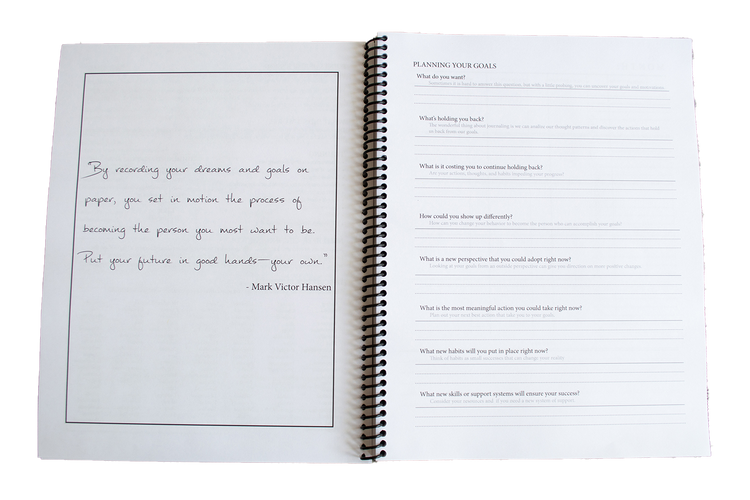 "By recording your dreams and goals on
paper, you set in motion the process of
becoming the person you most want to be.
Put your future in good hands—your own."
- Mark Victor Hansen
PLANNING YOUR GOALS
What do you want?
Sometimes it is hard to answer this question, but with a little pushing, you can uncover your goals and
What's holding you back?
The wonderful thing about journaling is we can analyze our thought patterns and become the
or back from our goals.
What is it costing you to continue holding back?
Are your actions, thoughts, and habits impeding your progress?
How could you show up differently?
How can you change your behaviors to become the person who can accomplish your goals?
What is a new perspective that you could adopt right now?
Looking at your goals from an outside perspective can give you direction or
What is the most meaningful action you could take right now?
Plan out your next best action that take you to your goals.
What new habits will you put in place right now?
Think of habits as small successes that can change your
What new skills or support systems will ensure your success?
Consider your resources and, if you need a new system or support.